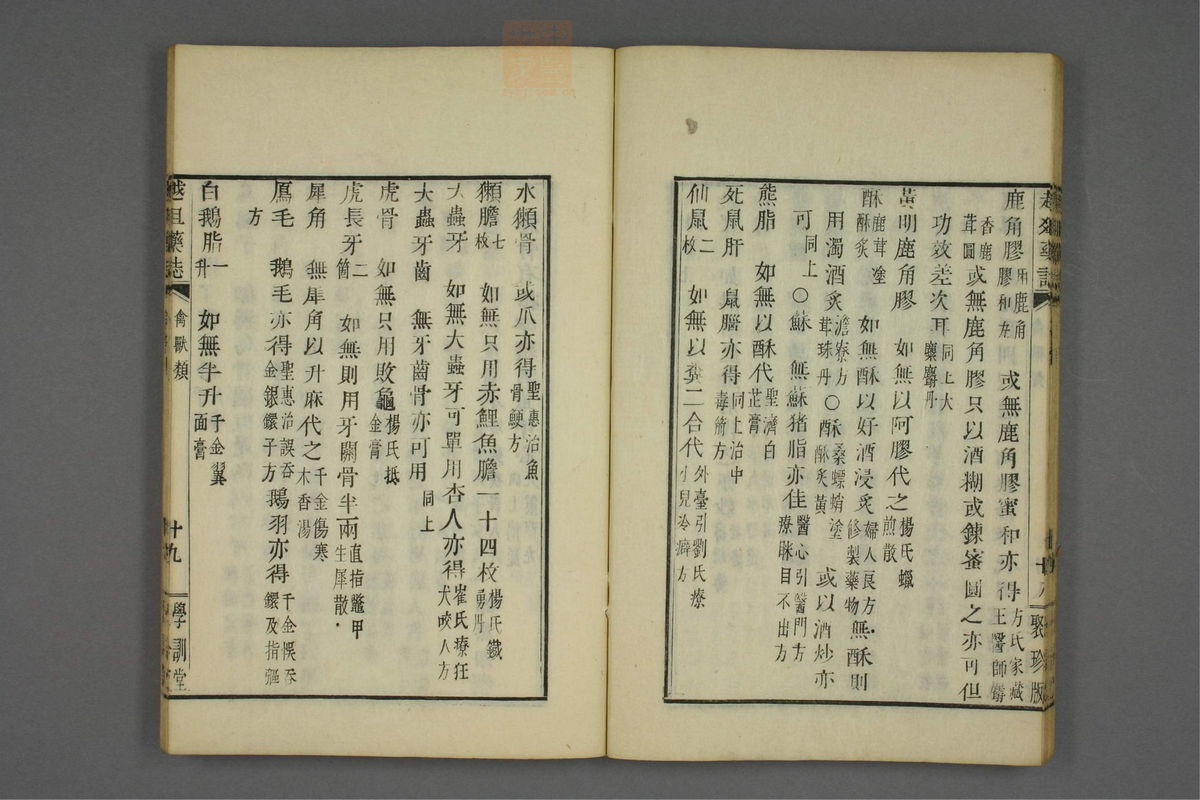 鹿角膠用鹿角膠和尨或無鹿角膠蜜和亦得方氏家藏王醫師麝
香鹿茸圓或無鹿角膠只以酒糊或鍊蜜圓之亦可但
功效差次耳同上大麋麝丹
黃明鹿角膠 如無以阿膠代之楊氏蠟煎散
酥鹿茸塗酥炙 如無酥以好酒浸炙婦人良方修製藥物無酥則
用濁酒炙澹寮方茸珠丹〇酥桑螵蛸塗酥炙黃 或以酒炒亦
可同上〇蘇 無蘇猪脂亦佳醫心引醫門方療眯目不出方
熊脂 如無以酥代聖濟白芷膏
死鼠肝 鼠腦亦得同上治中毒箭方
仙鼠二枚 如無以糞二合代外臺引劉氏療小兒冷癖方
十八
聚珍版
水獺骨 或爪亦得聖惠治魚骨鯁方
獺膽七枚 如無只用赤鯉魚膽一十四枚楊氏鐵勇丹
大蟲牙 如無大蟲牙可單用杏人亦得崔氏療狂犬咬人方
大蟲牙齒 無牙齒骨亦可用同上
虎骨 如無只用敗龜楊氏抵金膏
虎長牙二箇 如無則用牙關骨半兩直指鼈甲生犀散
犀角 無犀角以升麻代之千金傷寒木香湯
鴈毛 鵝毛亦得聖惠治誤吞金銀鐶子方鵝羽亦得千金悞吞鐶及指彄
方
白鵝脂一升 如無半升千金翼面膏
禽獸類
十九
學訓堂